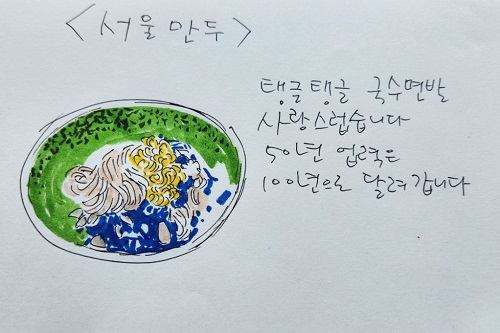 <서울만두>
탱글탱글 국수면발
사랑스럽습니다
50년 업력은
100년으로 달려갑니다